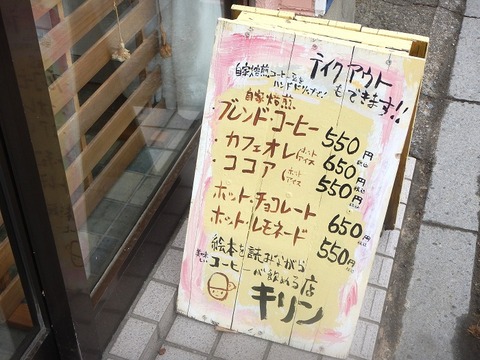 テイクアウト
もできます!!
自家焙煎コーヒー豆を
ハンドドリップで!
自家焙煎
ブレンド・コーヒー 550円
・カフェオレ ホット アイス 650円 税込
・ココア ホット アイス 550円 税込
ホット・チョコレート 650円 税込
ホット・レモネード 550円 税込
絵本を読みながら
美味しいコーヒーが飲める店
キリン